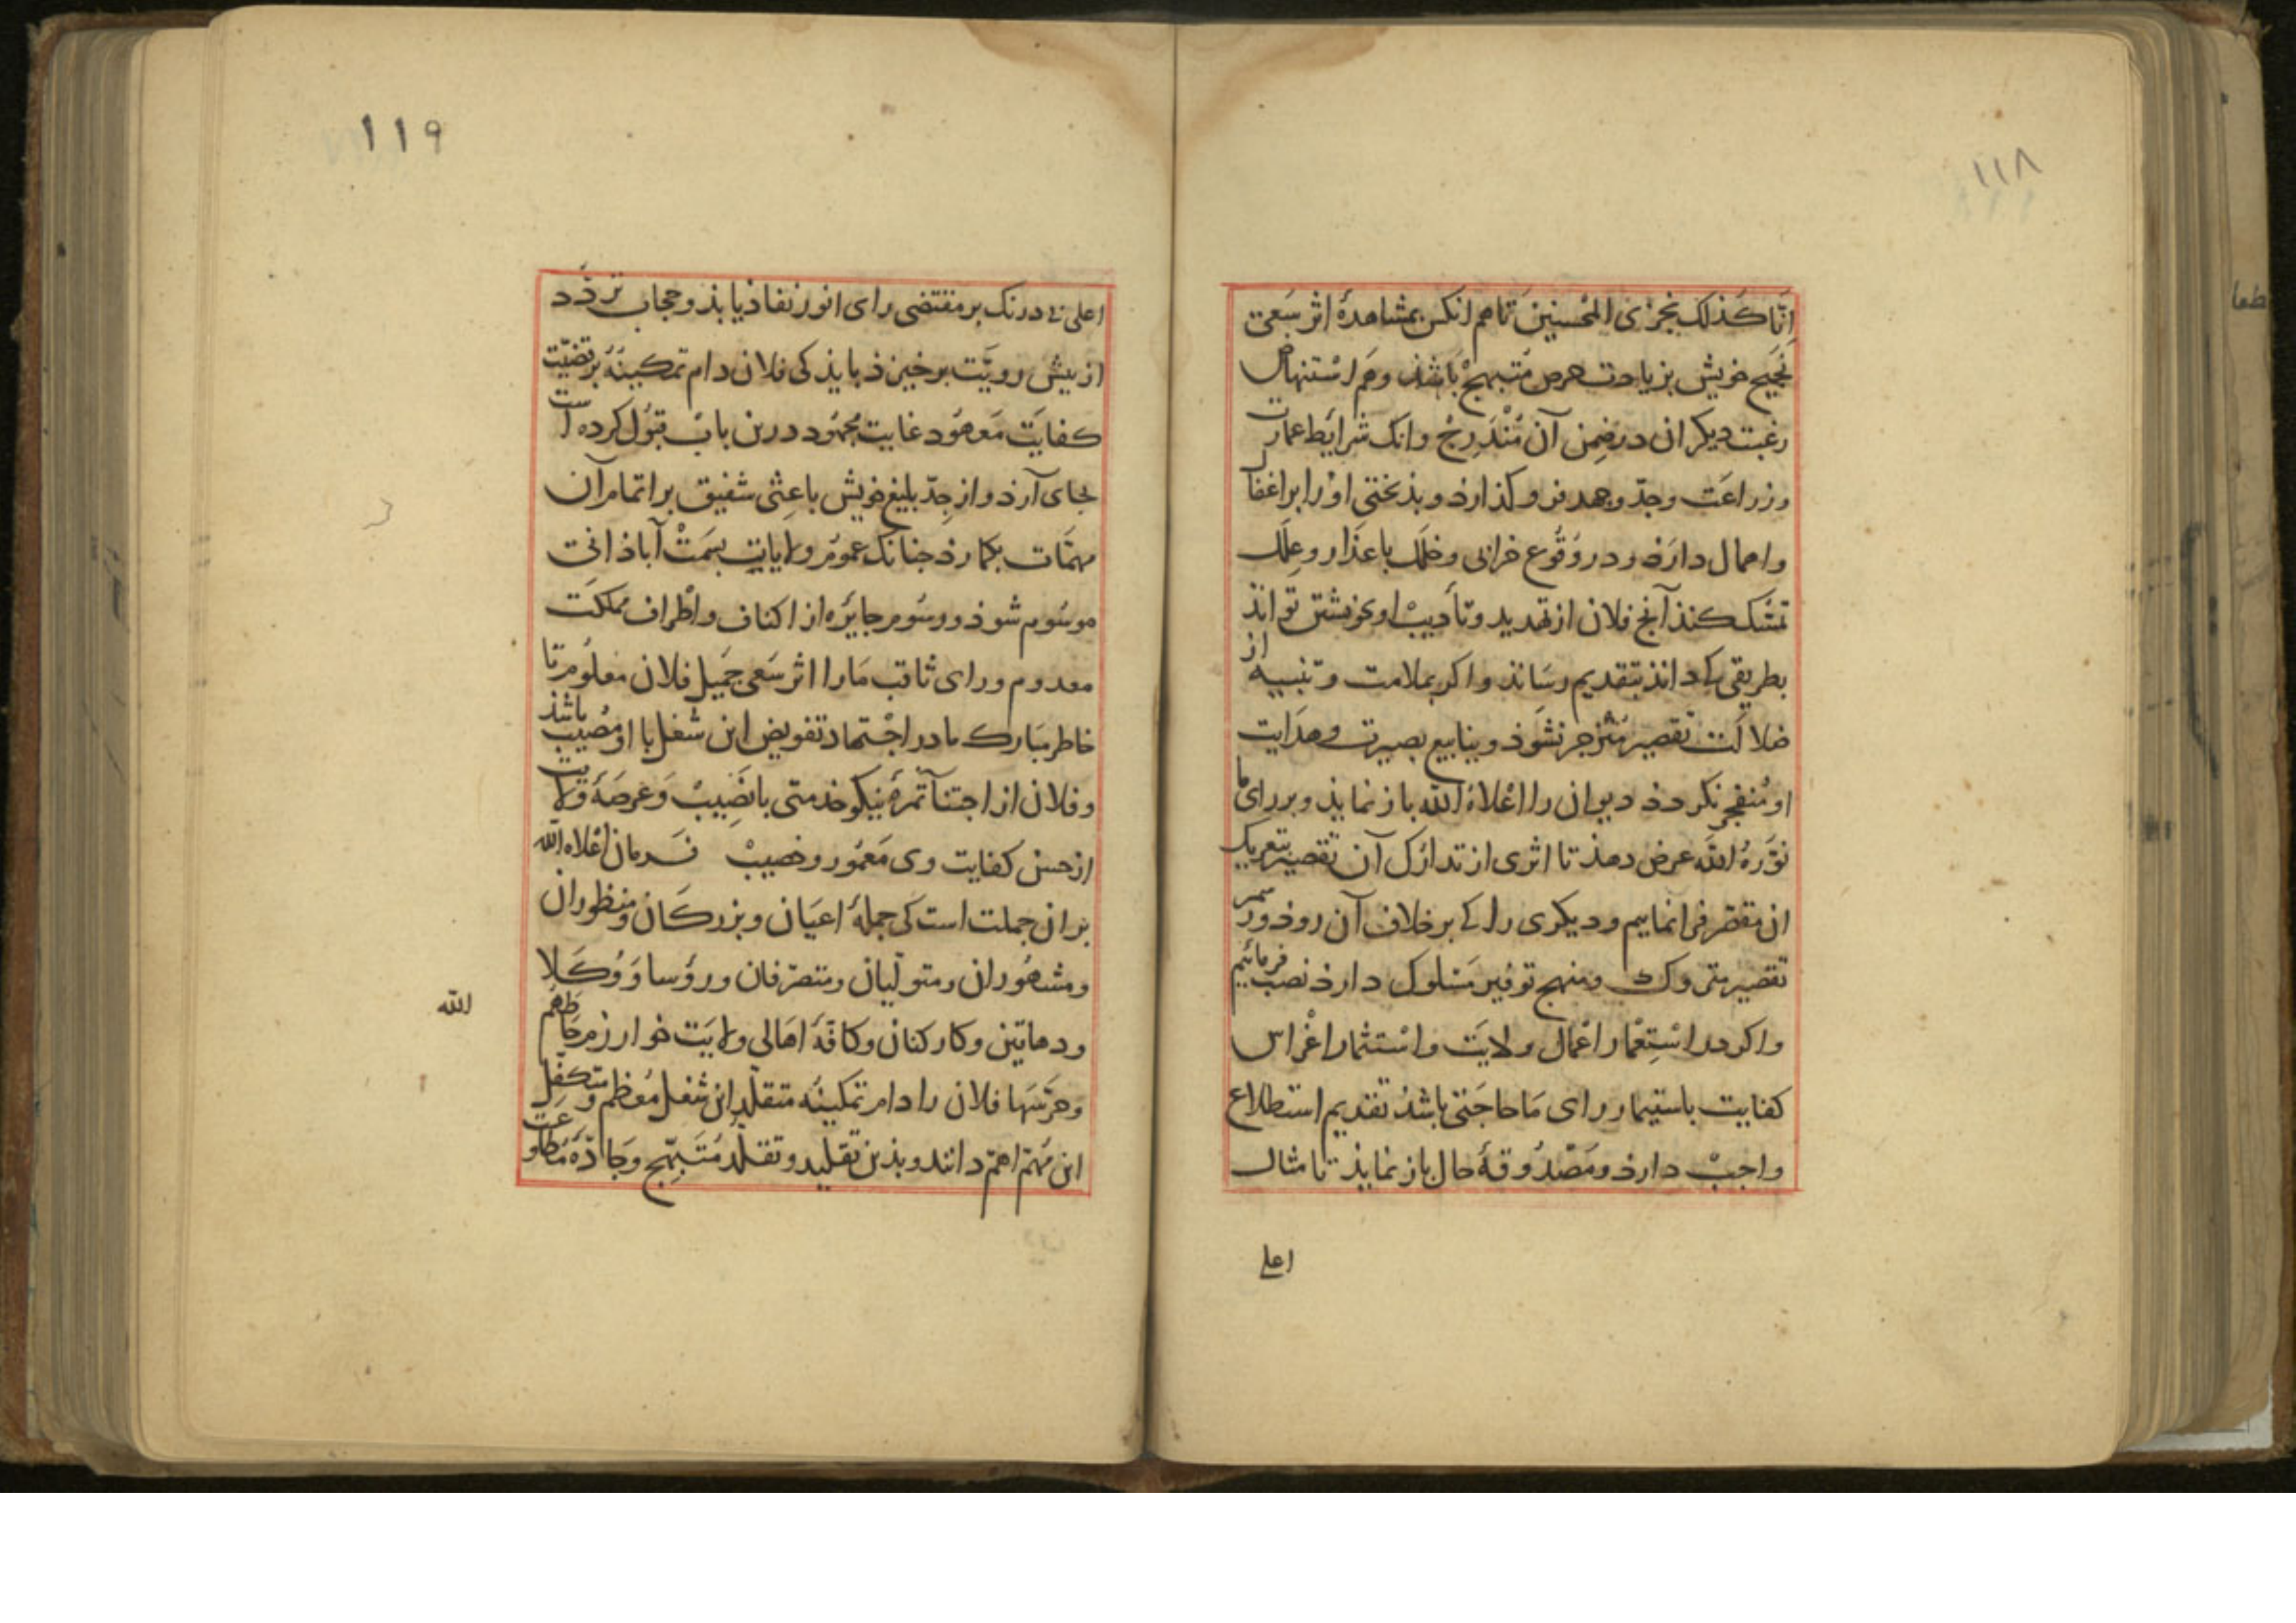 ۱۱۸
اِنّا کَذلک نجزی المُحسنینَ تا هم انکس بمشاهدهٔ اثر سَعی
نَجیح خویش بزیادت حرص مُتبهج باشذ و هَم اسْتنهاض
رغبت دیکران در ضِمن آن مُنْدَرِج وانک شرایط عمارت
و زراعَت و جدّ و جهد فرو کذارذ و بذبختی او را بر اغفال
و اهمال دارَذ و در وُقوع خرابی و خلَل باعذار و عِلَل
تمسّک کنذ آنچ فلان از تهدید و تأدیبْ او بخویشتن تواند
بطریقی کی داند بتقدیم رسَانذ و اکر بملامت و تنبیه از
ضلالت تقصیر مُنْزجر نشوَذ و ینابیع بصیرت و هدَایت
او مُنفجر نکردذ دیوان را اعْلاهُ اللّه باز نمایذ و بر رای ما
نوّرهُ اللّه عرض دهذ تا اثری از تدارُک آن تقصیر بتعریک
ان مقصّر فرا نماییم و دیکری را کی بر خلاف آن روذ و رسمر
تقصیر متروک و منهج توفیر مَسْلوک دارذ نصب فرمائیم
و اکر در اسْتِعْمار اعْمال ولایَت و اسْتثمار اغْراس
کفایت باستیمار رای مَا حاجَتی باشذ تقدیم استطلاع
واجبْ دارذ و مَصْدُوقهٔ حال باز نمایذ تا مثال
اعلی
۱۱۹
اعلی بی درنک بر مقتضی رای انور نفاذ یابذ و حجاب تردّد
از پیش رویّت برخیزذ بایذ کی فلان دام تمکینُهُ بر قضیّت
کفایَت مَعهُود غایت مجهُود درین بابْ قبُول کرده است
بجای آرذ و از جِدّ بلیغ خویش باعِثی شفیق بر اتمام آن
مهمّات بکمارذ چنانک عموُم ولایات بسِمَتْ آباذانی
موسُوم شوذ و رسُوم جایَره از اکناف و اطراف مملکَت
معدوم و رای ثاقب مَا را اثر سَعی جَمیل فلان معلوُم تا
خاطر مبَارک ما در اجْتهاد تفویض این شغل با او مُصیبْ باشذ
و فلان از اجتناآ ثمرهٔ نیکو خذمتی با نَصِیبْ وَ عرصَهٔ ولایت
از حسن کفایت وی مَعمُور و خصیبْ فرمان اعْلاهُ اللّه
بران جملت است کی جملهٔ اعیَان و بزرکان و منظوران
و مشهُوران و متولّیان و متصرّفان و رؤسا وَ وُکَلا
اللّه
و دهاقین و کارکنان و کافّهٔ اهَالی ولایَت خوارزم حَاطَهُم
و حَرَسَهَا فلان را دام تمکینُه متقلّد این شغل مُعَظم و متکفِل
این مُهمّ اهمّ دانند و بذین تقلید و تقلّد مُتَبهّج وَ جادّهَ مُطاوعَت